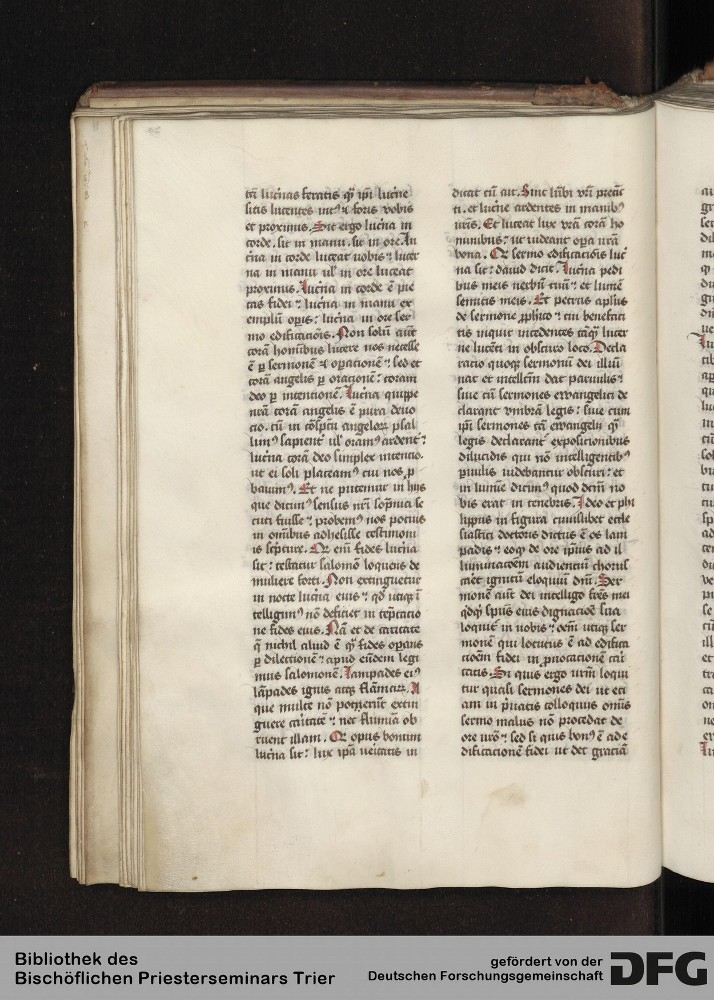 tā luc̄nas feratis qͣ ip̄i luc̄ne
sitis lucentes intꝰ ⁊ foris vobis
et proximis. Sit ergo luc̄na in
corde. sit in manu. sit in ore. lu
c̄na in corde luceat vobis ⁊ lucer
na in manu ul̓ in ore luceat
proximis. Luc̄na in corde ē pie
tas fidei ⁊ luc̄na in manu ex
emplū oꝑis: luc̄na in ore ser
mo edificatiōis. Non solū aūt
corā hominibus lucere nos necesse
ē ꝑ sermonē ⁊ oꝑacionē ⁊ sed et
corā angelis ꝑ oracionē: coram
deo ꝑ intencionē. Luc̄na quippe
nr̄a corā angelis ē pura deuo
cio. cū in cōspectu angeloꝝ psal
limꝰ sapient̓ ul̓ oramꝰ ardent̓:
luc̄na corā deo simplex intencio.
ut ei soli placeamꝰ cui nos ꝓ
bauimꝰ. Et ne putemur in hijs
que dicimꝰ sensus nr̄i
cuti fuisse ⁊ probemꝰ nos pocius
in omībus adhesisse testimoni
is sc̄pture. Qꝛ eni̅ fides luc̄na
sit: testatur salomō loquens de
muliere forti. Non extinguetur
in nocte luc̄na eius ⁊ qd̓ utiqꝫ ī
telligimꝰ nō deficiet in tēptacio
ne fides eius. Nā et de caritate
q̄ nichil aliud ē qͣ fides oꝑans
ꝑ dilectionē ⁊ apud eūdem legi
mus salomonē. Lampades eiꝰ
lāpades ignis atqꝫ flāmaꝝ. A
que multe nō potuerūt extin
guere caritatē ⁊ nec flumīa ob
ruent illam. Qꝛ opus bonum
luc̄na sit: lux ip̄a ueritatis in
dicat cū ait. Sint lūbi vr̄i precīc
ti. et luc̄ne ardentes in manibꝰ
uris. Et luceat lux vr̄a corā ho
minibus: ut uideant oꝑa ur̄a
bona. Qꝛ sermo edificatiōis luc̄
na sit: dauid dicit. Luc̄na pedi
bus meis uerbū tuū ⁊ et lumē
semitis meis. Et petrus apl̄us
de sermone ꝓphīco ⁊ cui benefaci
tis inquit intēdentes tāqͣ lucer
ne lucēti in obscuro loco. Decla
ratio quoqꝫ sermonū dei illūi
nat et intellcm̄ dat paruulis ⁊
siue cū sermones ewangelici de
clarant vmbrā legis: siue cum
ip̄i sermones tā ewangelij qͣ
legis declarant̓ expositionibus
dilucidis qui nō intelligentibꝰ
ꝑuulis uidebantur obscuri: et
in lumīe dicimꝰ quod dictū no
bis erat in tenebris. Ideo et phi
lippus in figura cuiuslibet eccle
siastici doctoris dictus ē os lam
padis ⁊ eo qꝫ de ore ipsius ad il
luminacōem audientiū chorus
cāret ignitū eloquiū dnī. Ser
monē aūt dei intelligo fr̄es mei
qͩqͩ spūs eius dignacioē sua
loquit̓ in uobis ⁊ oēm utiqꝫ ser
monē qui locutus ē ad edifica
cioēm fidei in ꝓuocationē cari
tatis. Si quis ergo urm̄ loqui
tur quasi sermones dei ut eti
am in pͥuatis colloquiis omīs
sermo malus nō procedat de
ore uro ⁊ sed si quis bonꝰ ē ad e
dificacionē fidei ut det graciā
Bibliothek des
Bischöflichen Priesterseminars Trier
gefördert von der
Deutschen Forschungsgemeinschaft
DFG